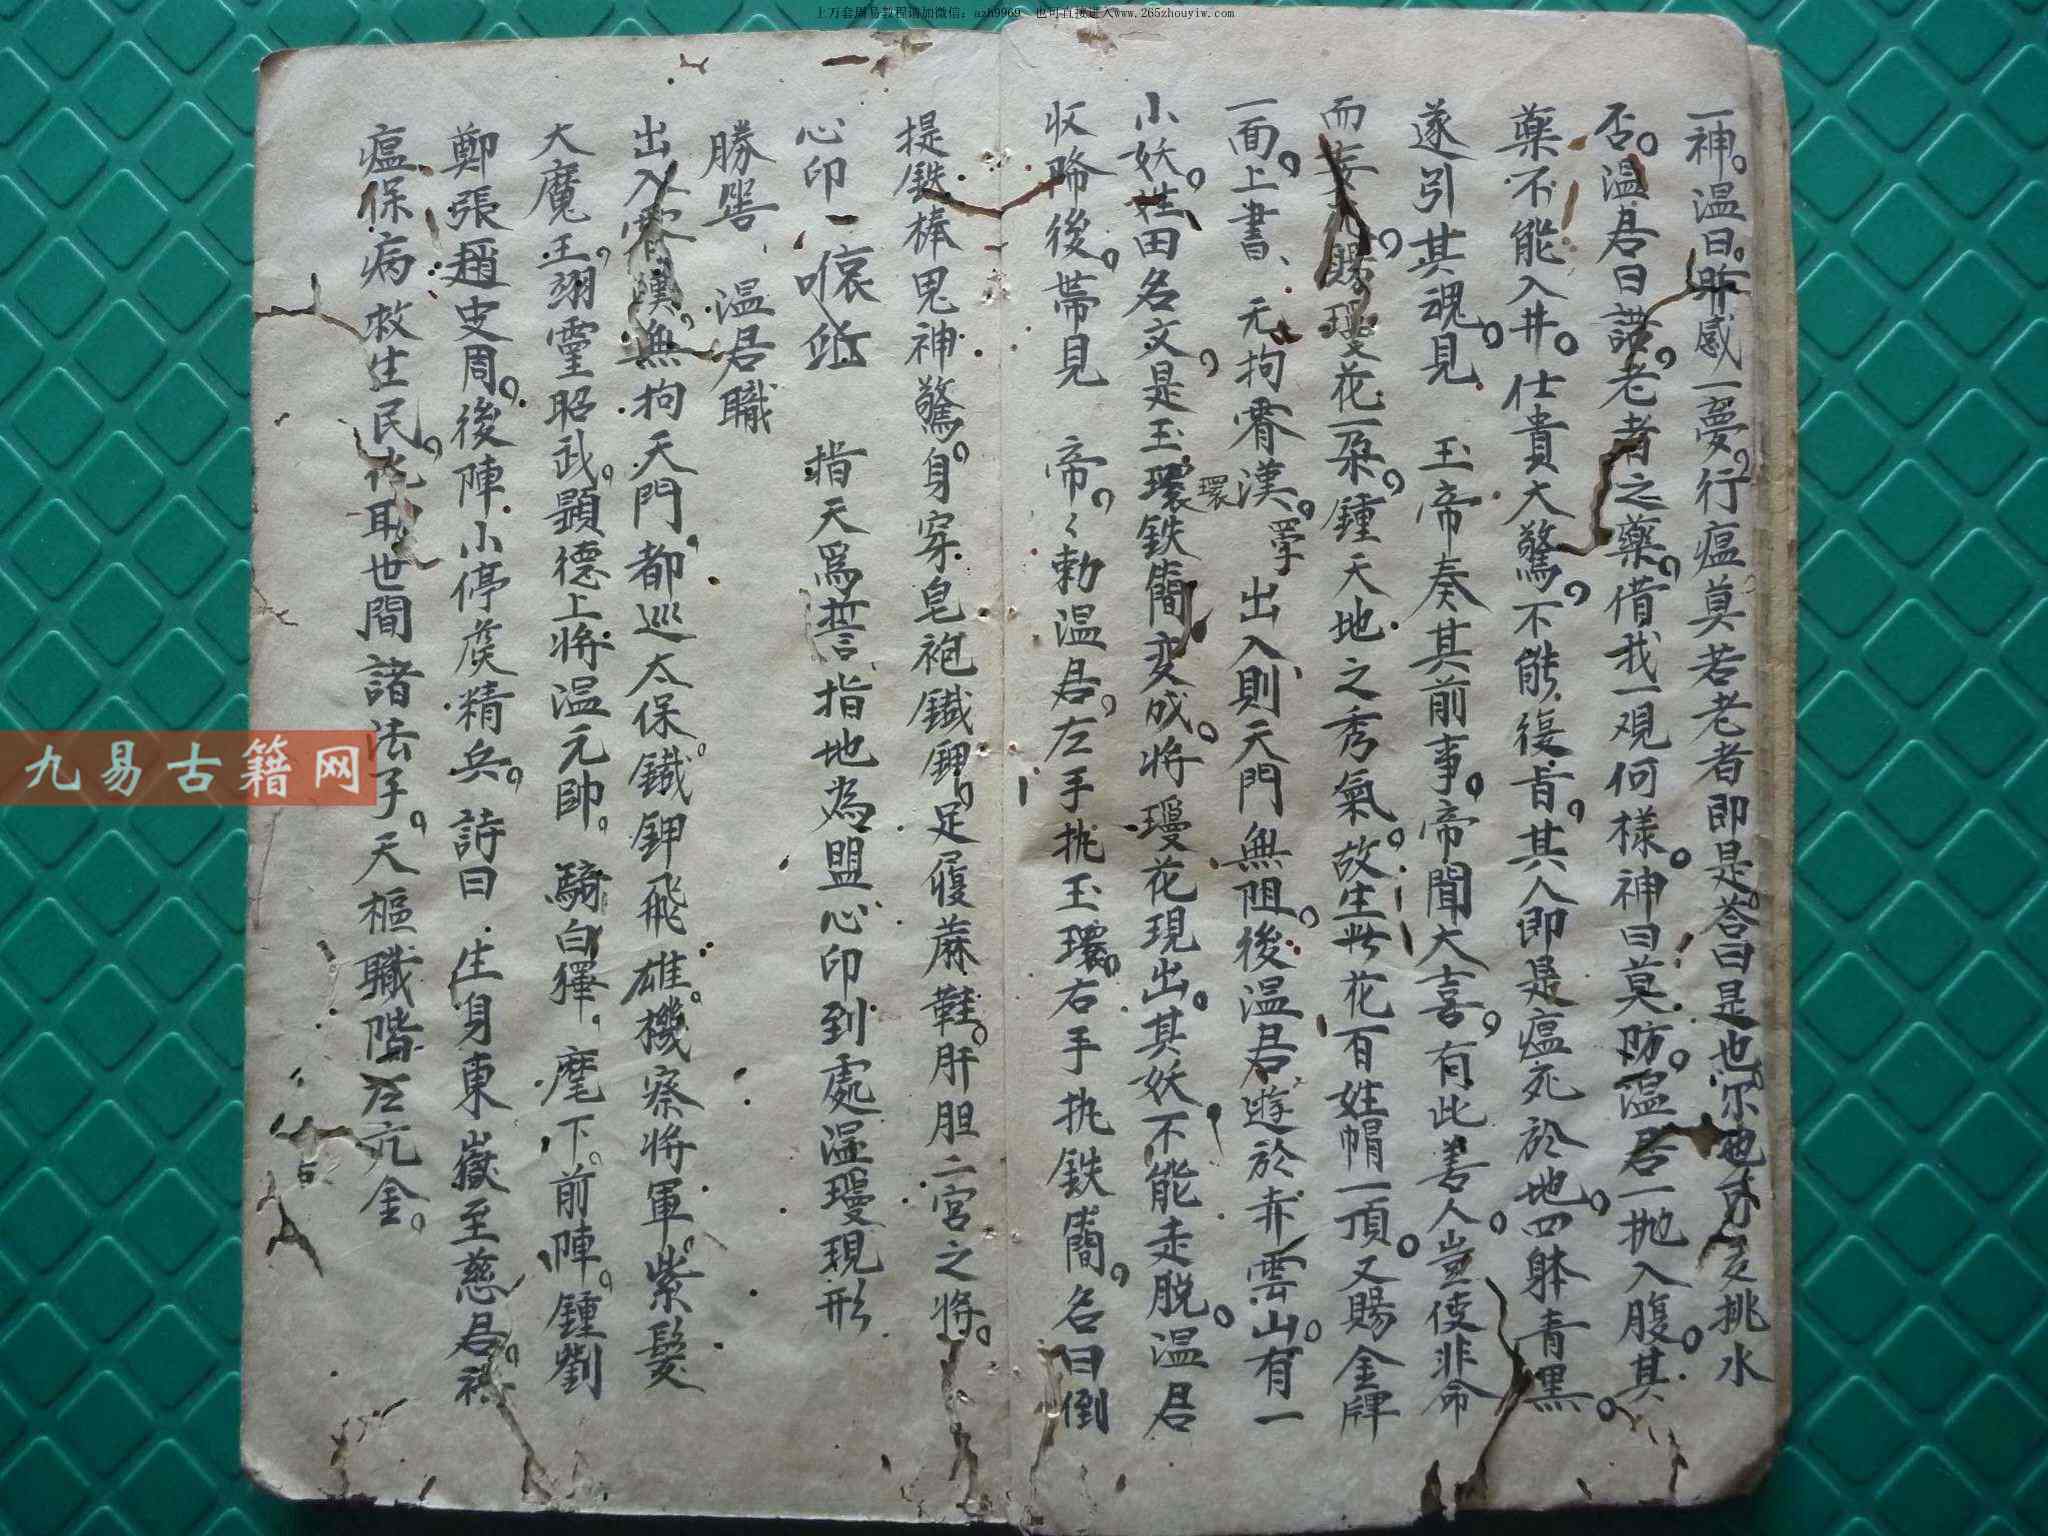 上万套周易教程请加微信：azh9969 也可直接进入www.265zhouyiw.com
一神。温曰。昨感一夢。行瘟莫若老者即是。荅曰是也。尔 挑水
否。温君曰諾。老者之藥。借我一观何樣。神曰莫妨。温君一抛入腹。其
藥不能入井。仕貴大驚。不能復旨。其人即是瘟死於地。四躰青黑。
遂引其魂。見 玉帝奏其前事。帝聞大喜。有此善人。豈使非命
而 賜瓊花一朶。鍾天地之秀氣。故生此花百姓帽一頂。又賜金牌
一面。上書、元拘霄漢。 出入則天門無阻。後温君遊於赤雲山。有一
小妖。姓田名文。是玉環鉄簡变成。将瓊花現出。其妖不能走脱。温君
環
收降後。帶見 帝。々勅温君。左手执玉環。右手执鉄簡。名曰倒
提鉄棒鬼神驚。身穿皂袍鐵鉀。足履蔴鞋。肝胆二宫之将。
心印一 指天爲誓、指地為盟心印到處温瓊現形
勝 、温君職
出入霄漢。無拘天門。都巡太保。鐵鉀飛雄。機察将軍。紫髮
大魔王。翊靈昭武。顕德上将温元帥。騎白獬。麾下。前陣。鍾劉
鄭張趙史周。後陣小停 精兵。詩曰、生身東嶽至慈君。
瘟保病救生民。 世間諸法子。天樞職階左亢金。
九易古籍网